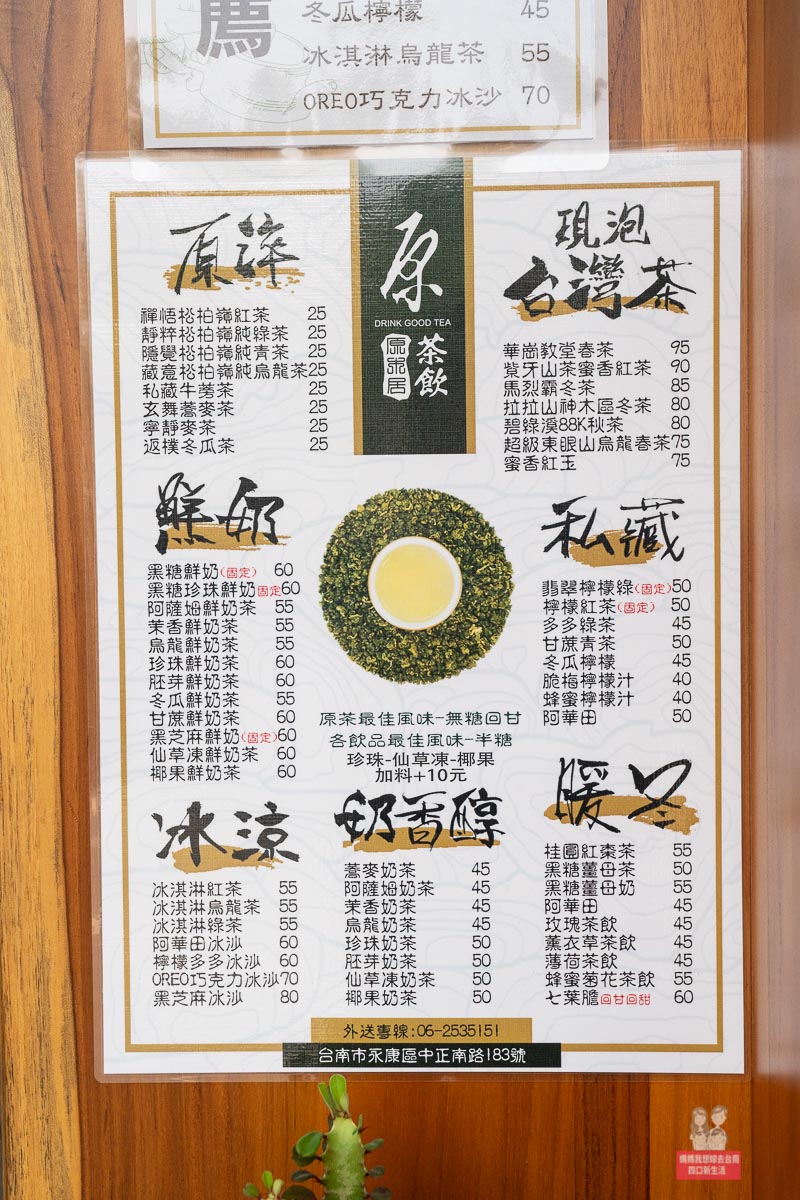 薦
冬瓜檸檬 45
冰淇淋烏龍茶 55
OREO巧克力冰沙 70
原
DRINK GOOD TEA
茶飲
原萃
禪悟松柏嶺紅茶 25
靜粹松柏嶺純綠茶 25
隱覺松柏嶺純青茶 25
藏意松柏嶺純烏龍茶25
私藏牛蒡茶 25
玄舞蕎麥茶 25
寧靜麥茶 25
返樸冬瓜茶 25
現泡
台灣茶
華崗教堂春茶 95
紫牙山茶蜜香紅茶 90
馬烈霸冬茶 85
拉拉山神木區冬茶 80
碧綠溪88K秋茶 80
超級東眼山烏龍春茶75
蜜香紅玉 75
鮮奶
黑糖鮮奶(固定) 60
黑糖珍珠鮮奶固定60
阿薩姆鮮奶茶 55
茉香鮮奶茶 55
烏龍鮮奶茶 55
珍珠鮮奶茶 60
胚芽鮮奶茶 60
冬瓜鮮奶茶 55
甘蔗鮮奶茶 60
黑芝麻鮮奶(固定)60
仙草凍鮮奶茶 60
椰果鮮奶茶 60
私藏
翡翠檸檬綠(固定)50
檸檬紅茶(固定) 50
多多綠茶 45
甘蔗青茶 50
冬瓜檸檬 45
脆梅檸檬汁 40
蜂蜜檸檬汁 40
阿華田 50
原茶最佳風味-無糖回甘
各飲品最佳風味-半糖
珍珠-仙草凍-椰果
加料+10元
冰涼
冰淇淋紅茶 55
冰淇淋烏龍茶 55
冰淇淋綠茶 55
阿華田冰沙 60
檸檬多多冰沙 60
OREO巧克力冰沙70
黑芝麻冰沙 80
奶香醇
蕎麥奶茶 45
阿薩姆奶茶 45
茉香奶茶 45
烏龍奶茶 45
珍珠奶茶 50
胚芽奶茶 50
仙草凍奶茶 50
椰果奶茶 50
暖冬
桂圓紅棗茶 55
黑糖薑母茶 50
黑糖薑母奶 55
阿華田 45
玫瑰茶飲 45
薰衣草茶飲 45
薄荷茶飲 45
蜂蜜菊花茶飲 55
七葉膽回甘回甜 60
外送專線:06-2535151
台南市永康區中正南路183號
媽媽我想嫁去台南
四口新生活